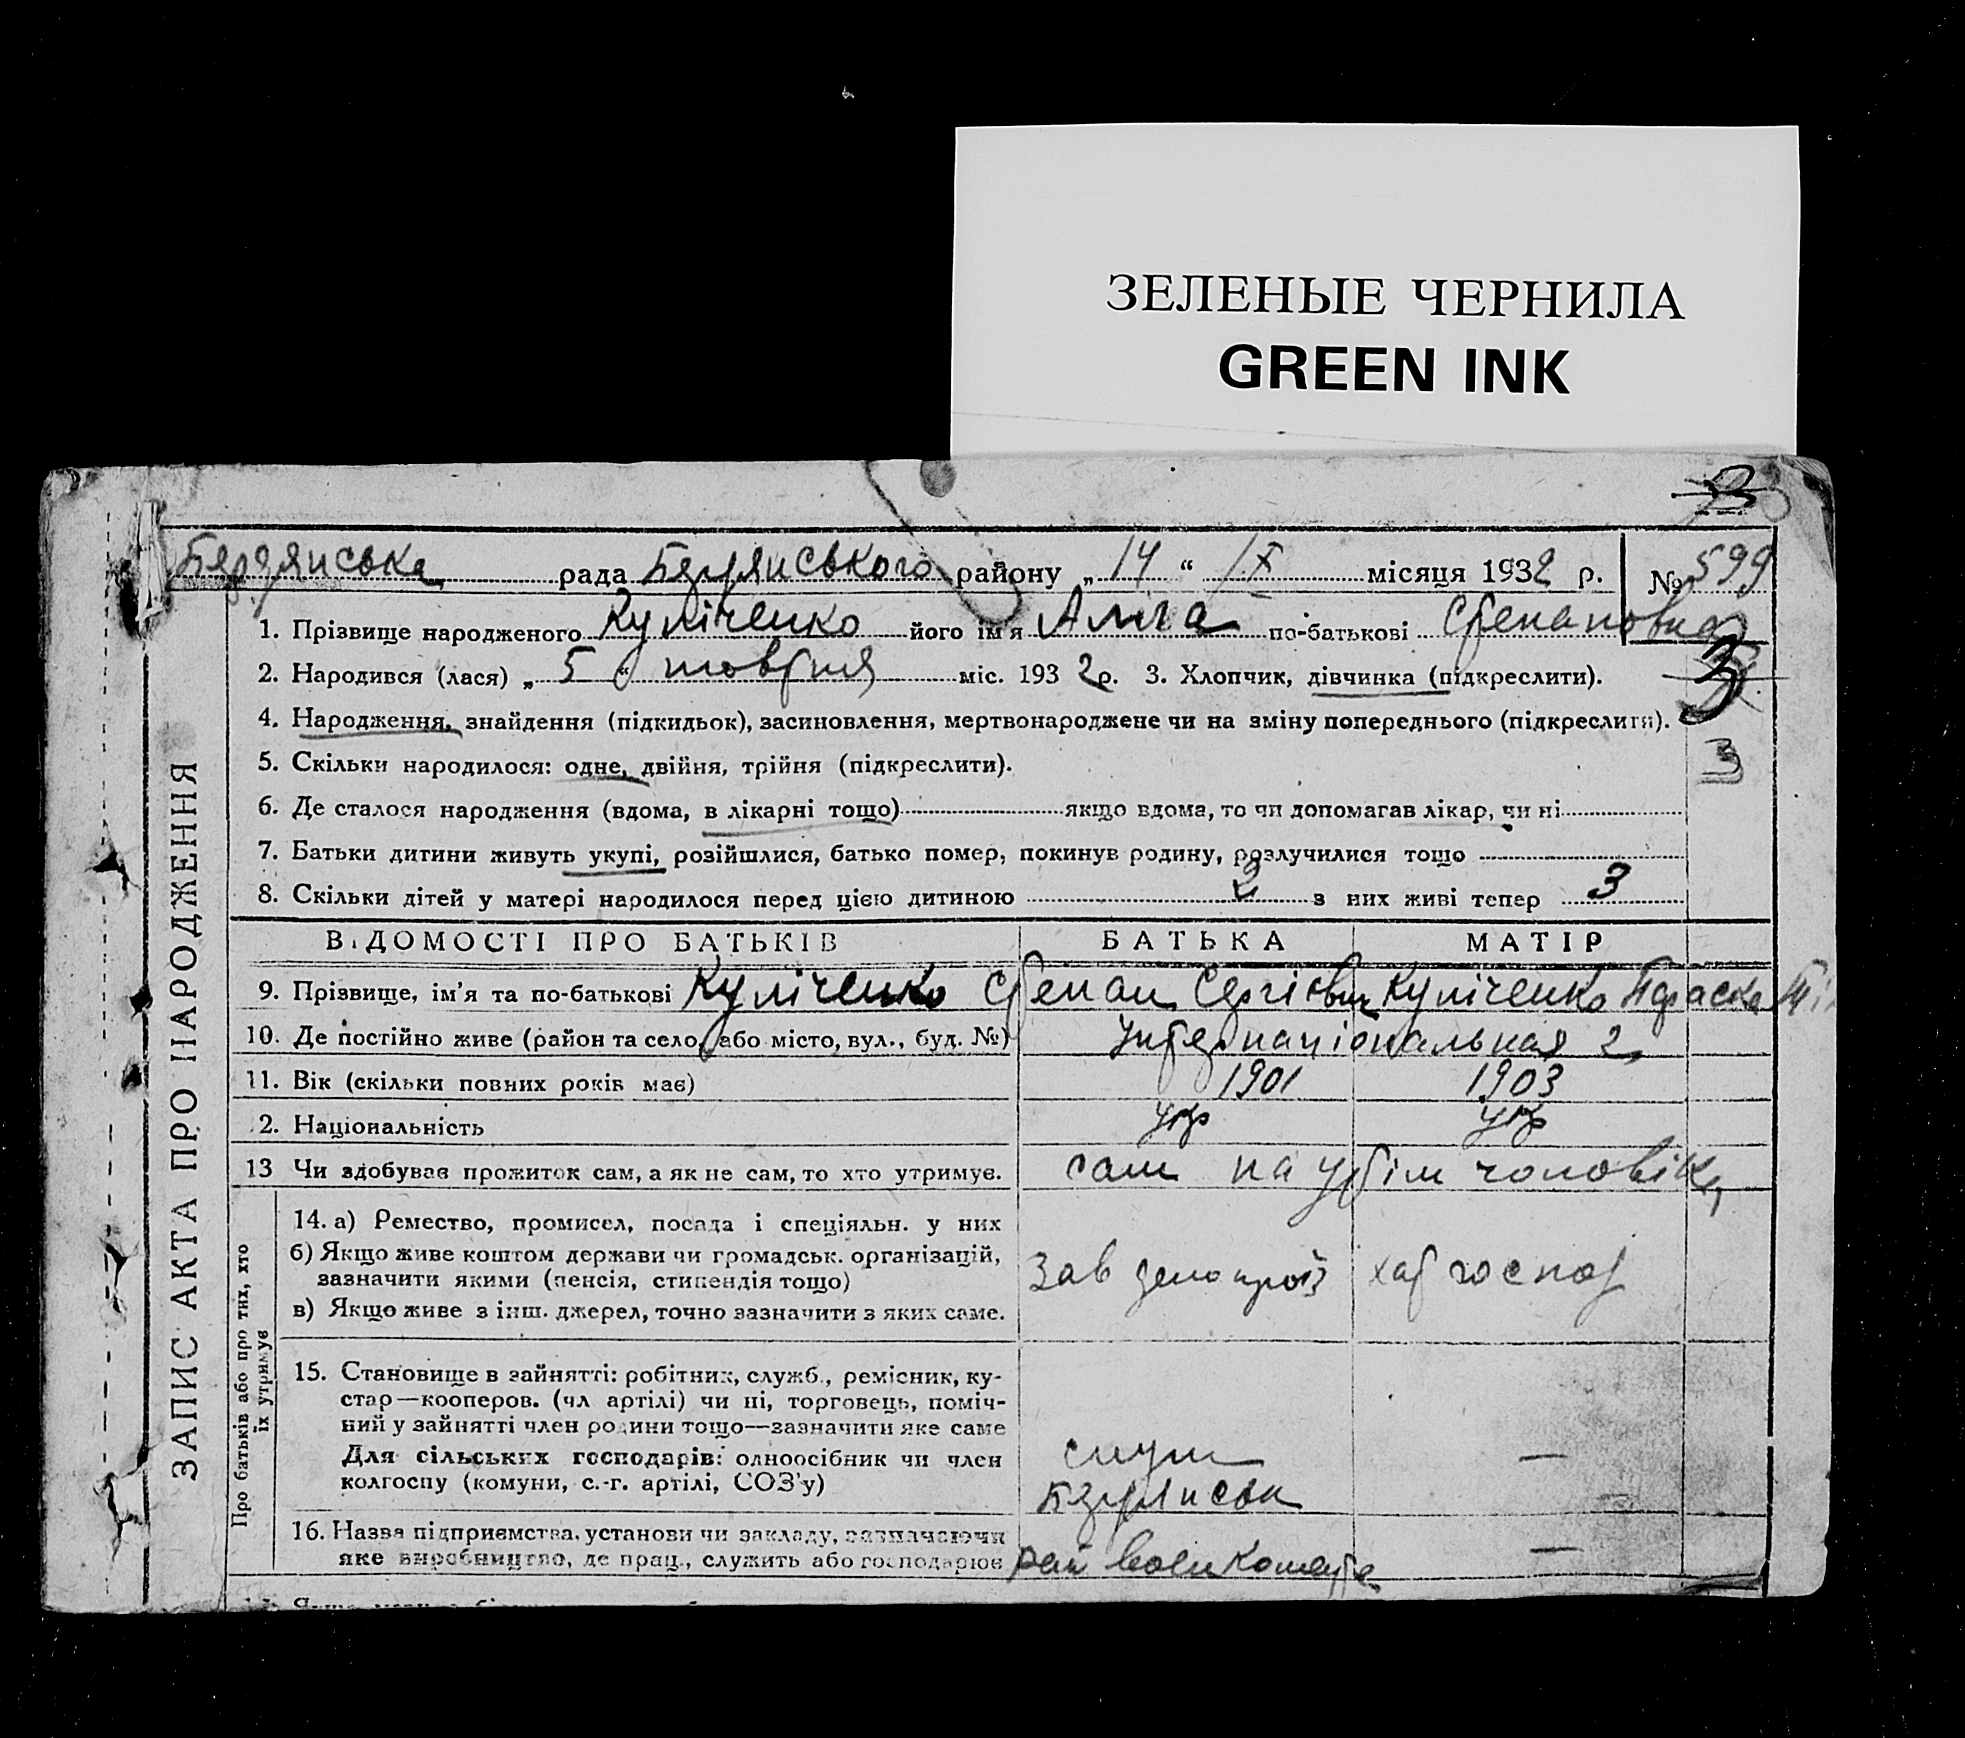 ЗЕЛЕНЫЕ ЧЕРНИЛА
GREEN INK
3
Бердянська рада Бердянського району „ 14 “ IX місяця 1932 р. № 599
1. Прізвище народженого Куліченко його ім'я Алла по-батькові Степановна
2. Народився (лася) „ 5 “ жовтня міс. 1932 р. 3. Хлопчик, дівчинка (підкреслити). 3
4. Народження, знайдення (підкидьок), засиновлення, мертвонароджене чи на зміну попереднього (підкреслити).
5. Скільки народилося: одне, двійня, трійня (підкреслити). 3
6. Де сталося народження (вдома, в лікарні тощо) якщо вдома, то чи допомагав лікар, чи ні
7. Батьки дитини живуть укупі, розійшлися, батько помер, покинув родину, розлучилися тощо
8. Скільки дітей у матері народилося перед цією дитиною 2 з них живі тепер 3
ЗАПИС АКТА ПРО НАРОДЖЕННЯ
ВІДОМОСТІ ПРО БАТЬКІВ БАТЬКА МАТІР
9. Прізвище, ім'я та по-батькові Куліченко Степан Сергієвич Куліченко Параска
10. Де постійно живе (район та село, або місто, вул., буд. №) Інтернаціональная 2
11. Вік (скільки повних років має) 1901 1903
2. Національність укр укр
13 Чи здобуває прожиток сам, а як не сам, то хто утримує. сам на утрім чоловіка
Про батьків або про тих, хто
їх утримує
14. а) Ремество, промисел, посада і спеціяльн. у них
б) Якщо живе коштом держави чи громадськ. організацій,
зазначити якими (пенсія, стипендія тощо)
Зав діло произ хат господ
в) Якщо живе з інш. джерел, точно зазначити з яких саме.
15. Становище в зайнятті: робітник, служб., ремісник, ку-
стар—кооперов. (чл артілі) чи ні, торговець, поміч-
ний у зайнятті член родини тощо—зазначити яке саме
Для сільських господарів: одноосібник чи член
колгоспу (комуни, с.-г. артілі, СОЗ'у)
служ —
Бердянськ
16. Назва підприємства, установи чи закладу, зазначаючи
яке виробництво, де прац., служить або господарює
рай воєнкомата —